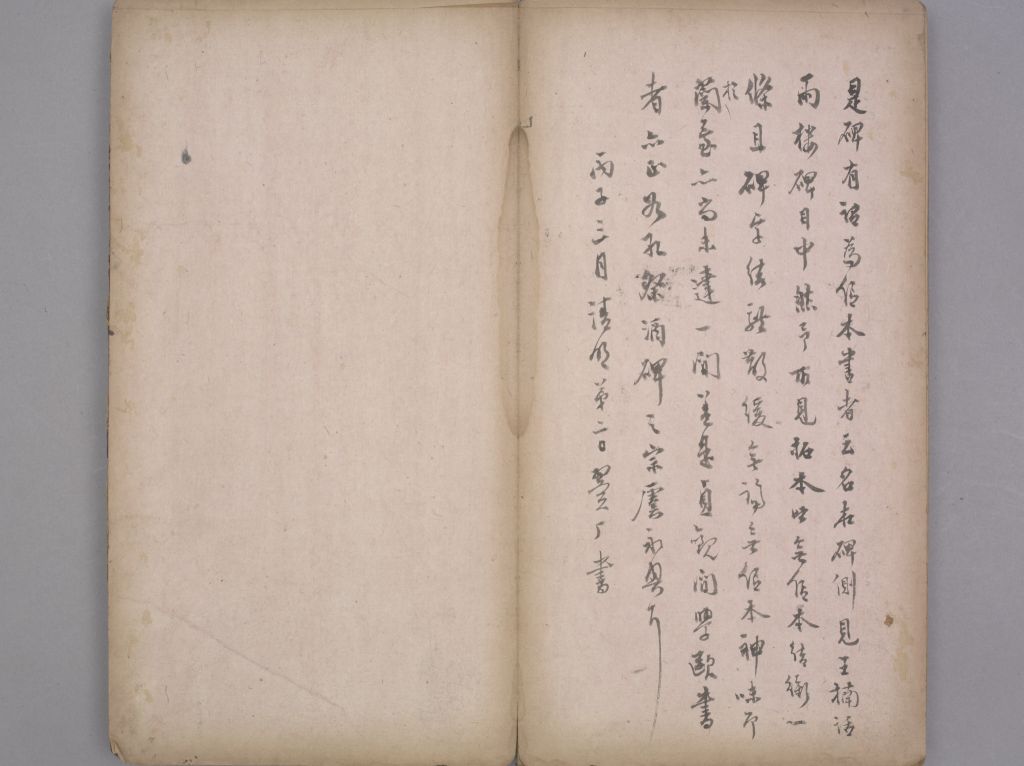 是碑有謂為信本書者云名在碑側見王楠話
雨樓碑目中然予所見拓本皆無信本結銜一
條且碑字結體散緩無論無信本神味即
於蘭臺亦尚未達一間蓋是貞觀間學歐書
者亦正如孔祭酒碑之宗虞永興耳
丙子三月清明第二日翼厂書